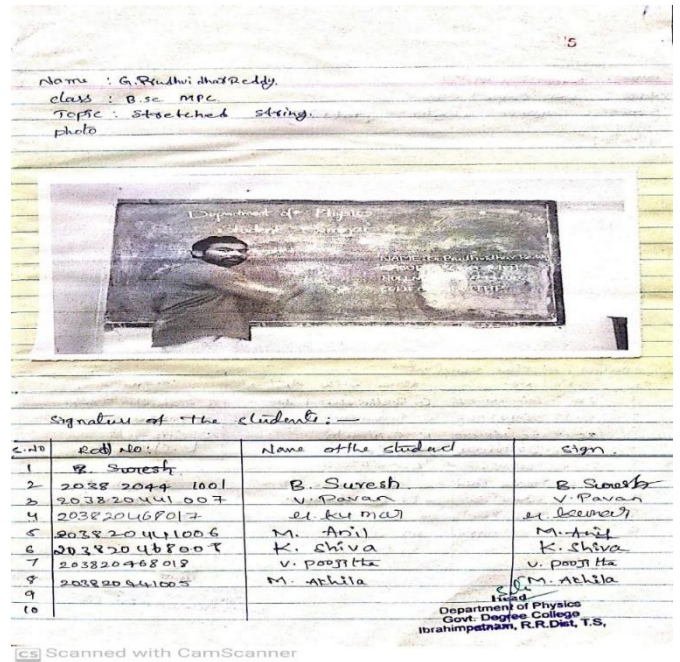 5
Name : G. Prudhvi dhar Reddy.
class : B.sc MPC
Topic : Stretched string.
photo
Department of Physics
Student Seminar
Signature of the students :—
S.NO Roll No: Name of the student Sign.
1 B. Suresh
2 2038 2044 1001 B. Suresh B. Suresh
3 203820441007 V. Pavan V. Pavan
4 203820468017 M. Kumar M. Kumar
5 203820441006 M. Anil M. Anil
6 K. Shiva K. Shiva
7 203820468018 V. Poojitha V. Poojitha
8 203820441005 M. Akhila M. Akhila
9
10
Head
Department of Physics
Govt. Degree College
Ibrahimpatnam, R.R.Dist, T.S,
CS Scanned with CamScanner